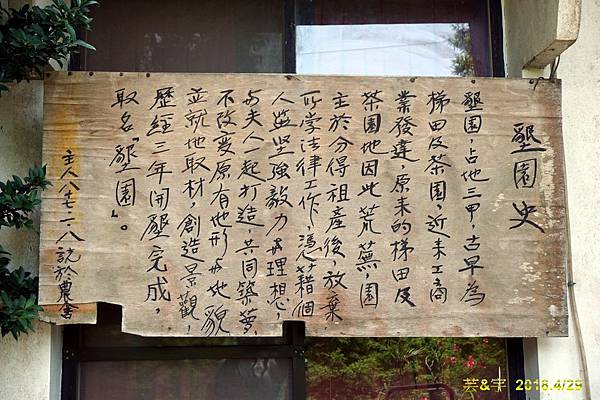 墾園史
墾園，占地三甲，古早為
梯田及茶園，近來工商
業發達，原來的梯田及
茶園地因此荒蕪，園
主於分得祖產後，放棄
所学法律工作，憑藉個
人益坚強毅力与理想，
与夫人一起打造，共同築夢，
不改变原有地形与地貌
並就地取材，創造景觀，
歷經三年開墾完成，
取名『墾園』。
主人八七二八説於農舍
芸&宇 2018.4/29